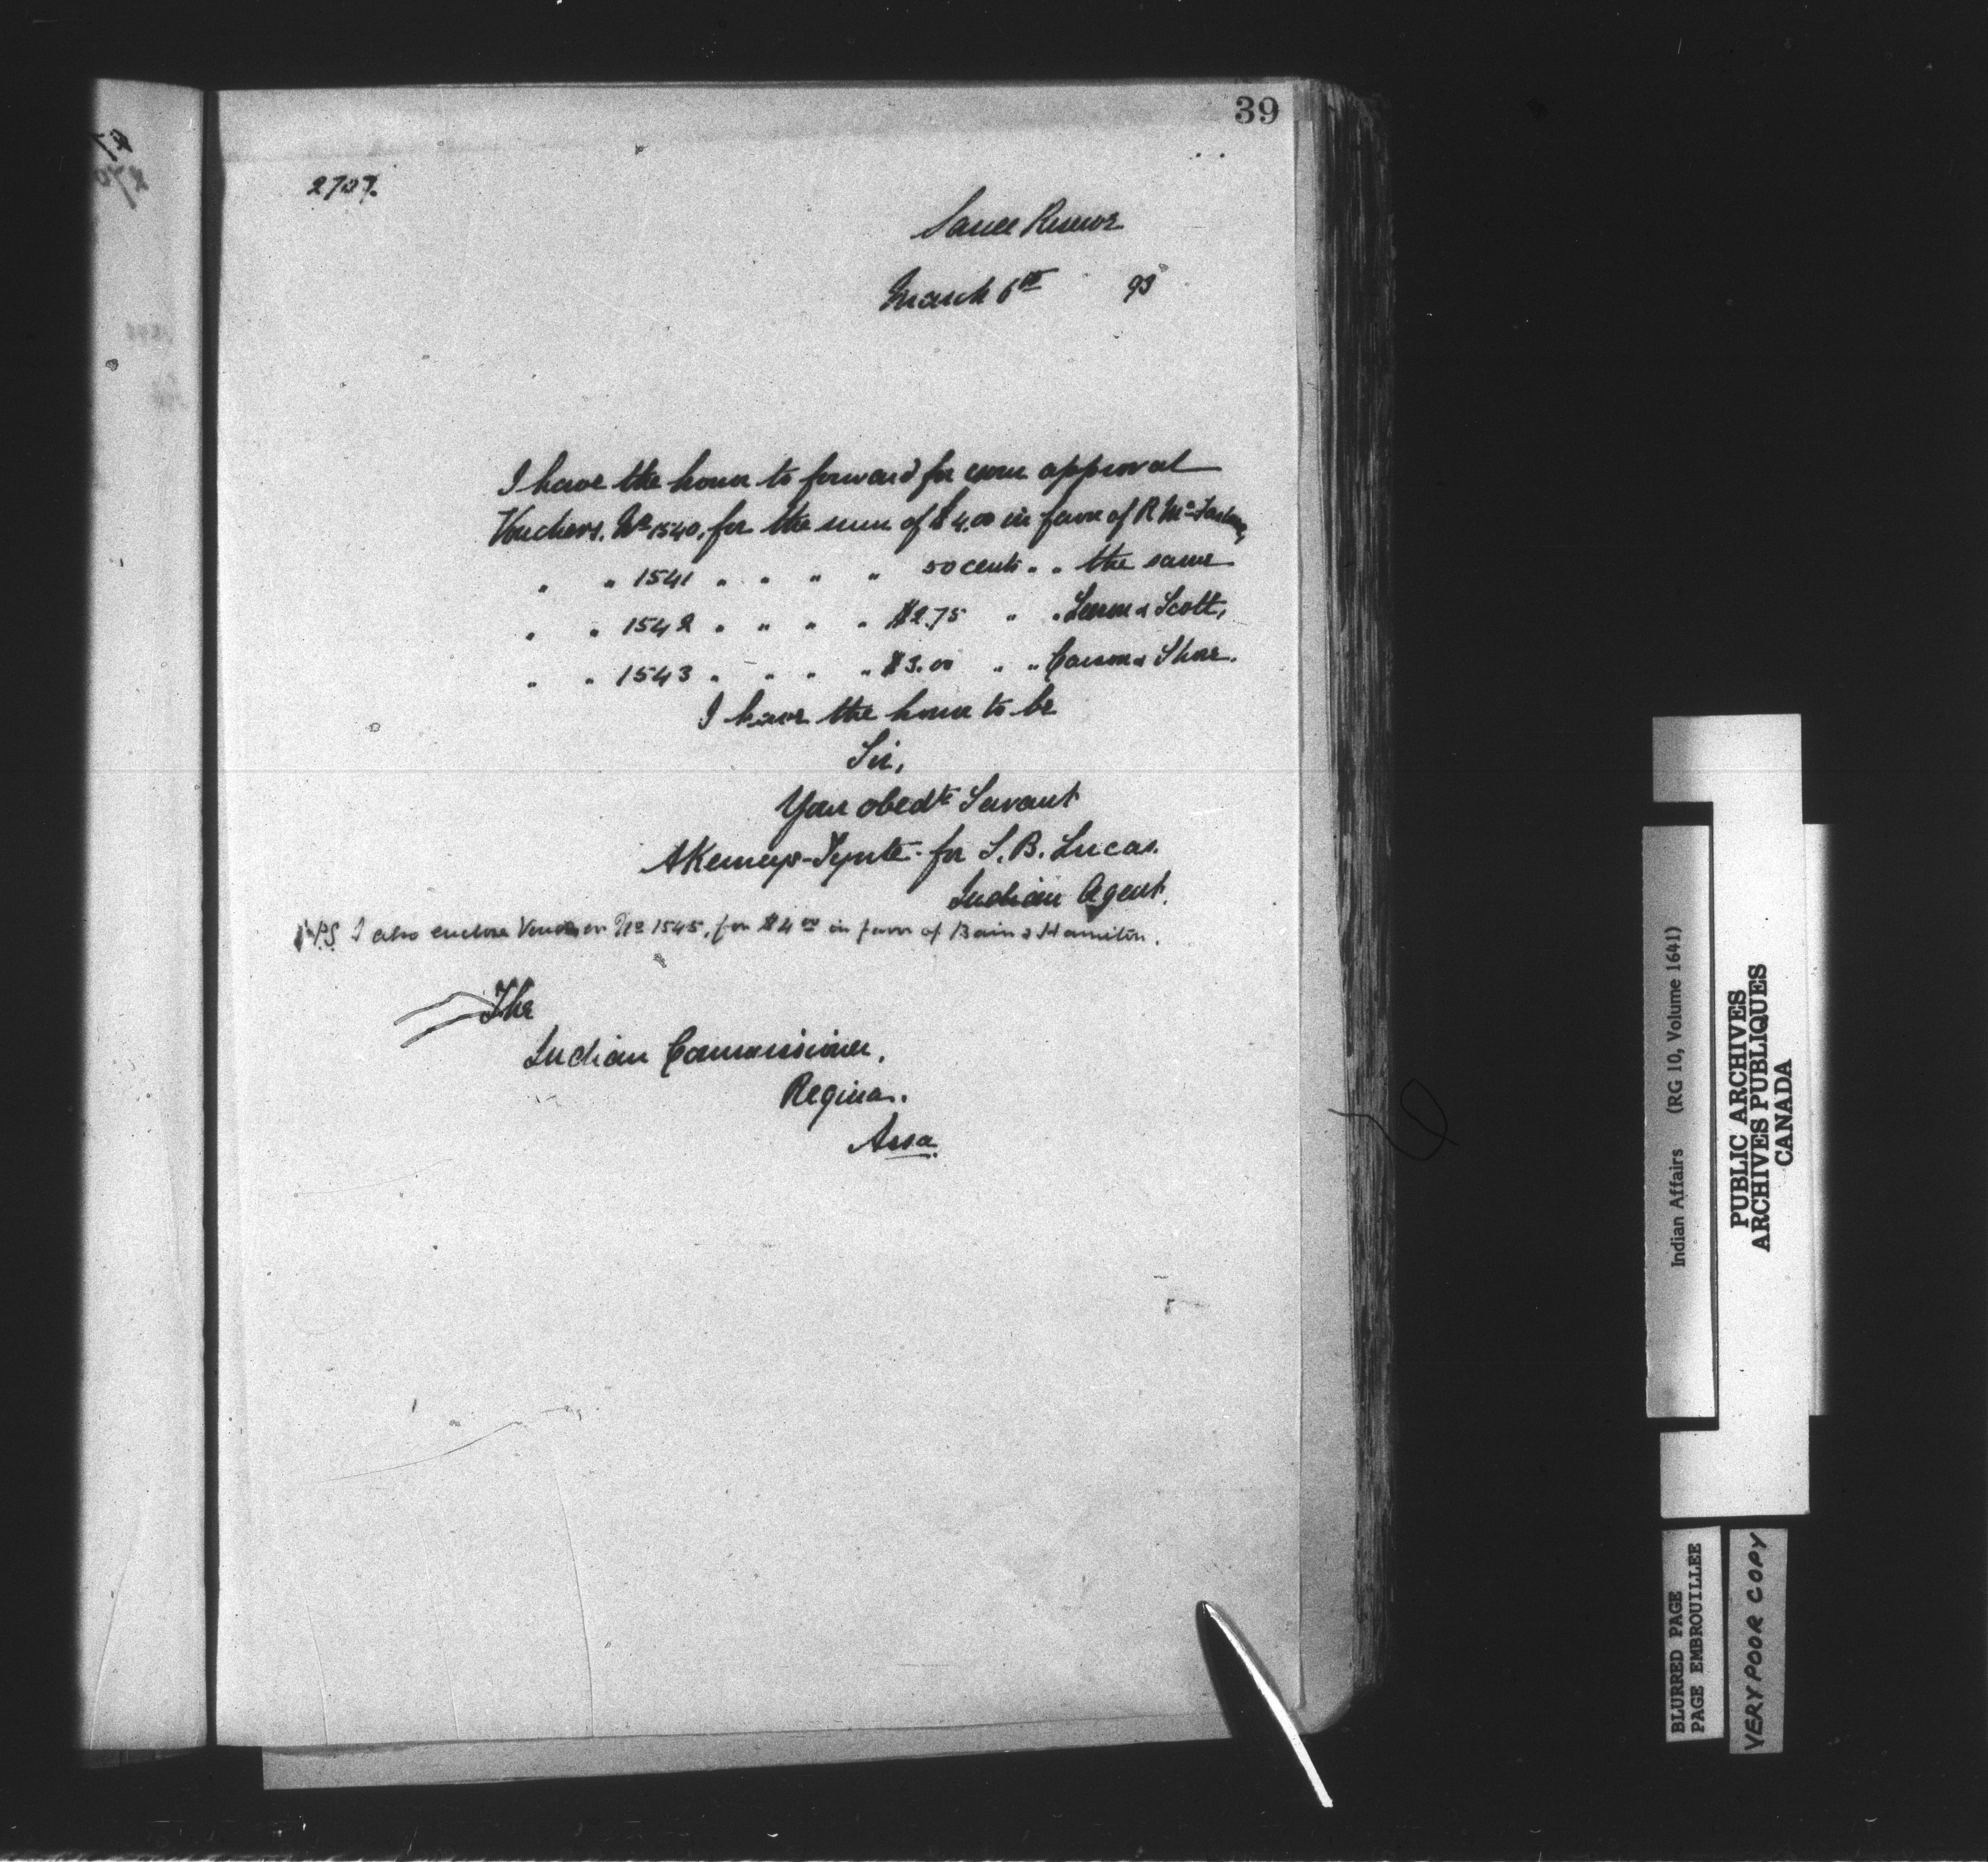 39
2707.
Sarcee Reserve
March 6th 93
I have the honor to forward for your approval
Vouchers. No 1540, for the sum of $4.00 in favor of R Mc
" " 1541 " " " " 50 cents " " the same
" " 1542 " " " " $2.75 " " Leeson & Scott,
" " 1543 " " " " $3.00 " " Carson & Shore.
I have the honor to be
Sir,
Your obedt Servant
AKemeys-Tynte for S. B. Lucas.
Indian Agent.
P.S. I also enclose Voucher No 1545, for $4 00 in favor of Bain & Hamilton.
The
Indian Commissioner,
Regina.
Assa.
Indian Affairs (RG 10, Volume 1641)
PUBLIC ARCHIVES
ARCHIVES PUBLIQUES
CANADA
BLURRED PAGE
PAGE EMBROUILLEE
VERY POOR COPY